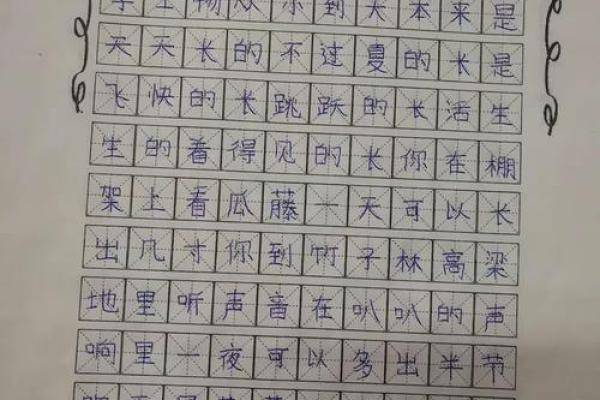 到大本来是
天天长的不过夏的长是
飞快的长跳跃的长活生
生的看得见的长你在棚
架上看瓜藤一天可以长
出凡寸你到竹子林高梁
地里听声音在叭叭的声
响里一夜可以多出半节